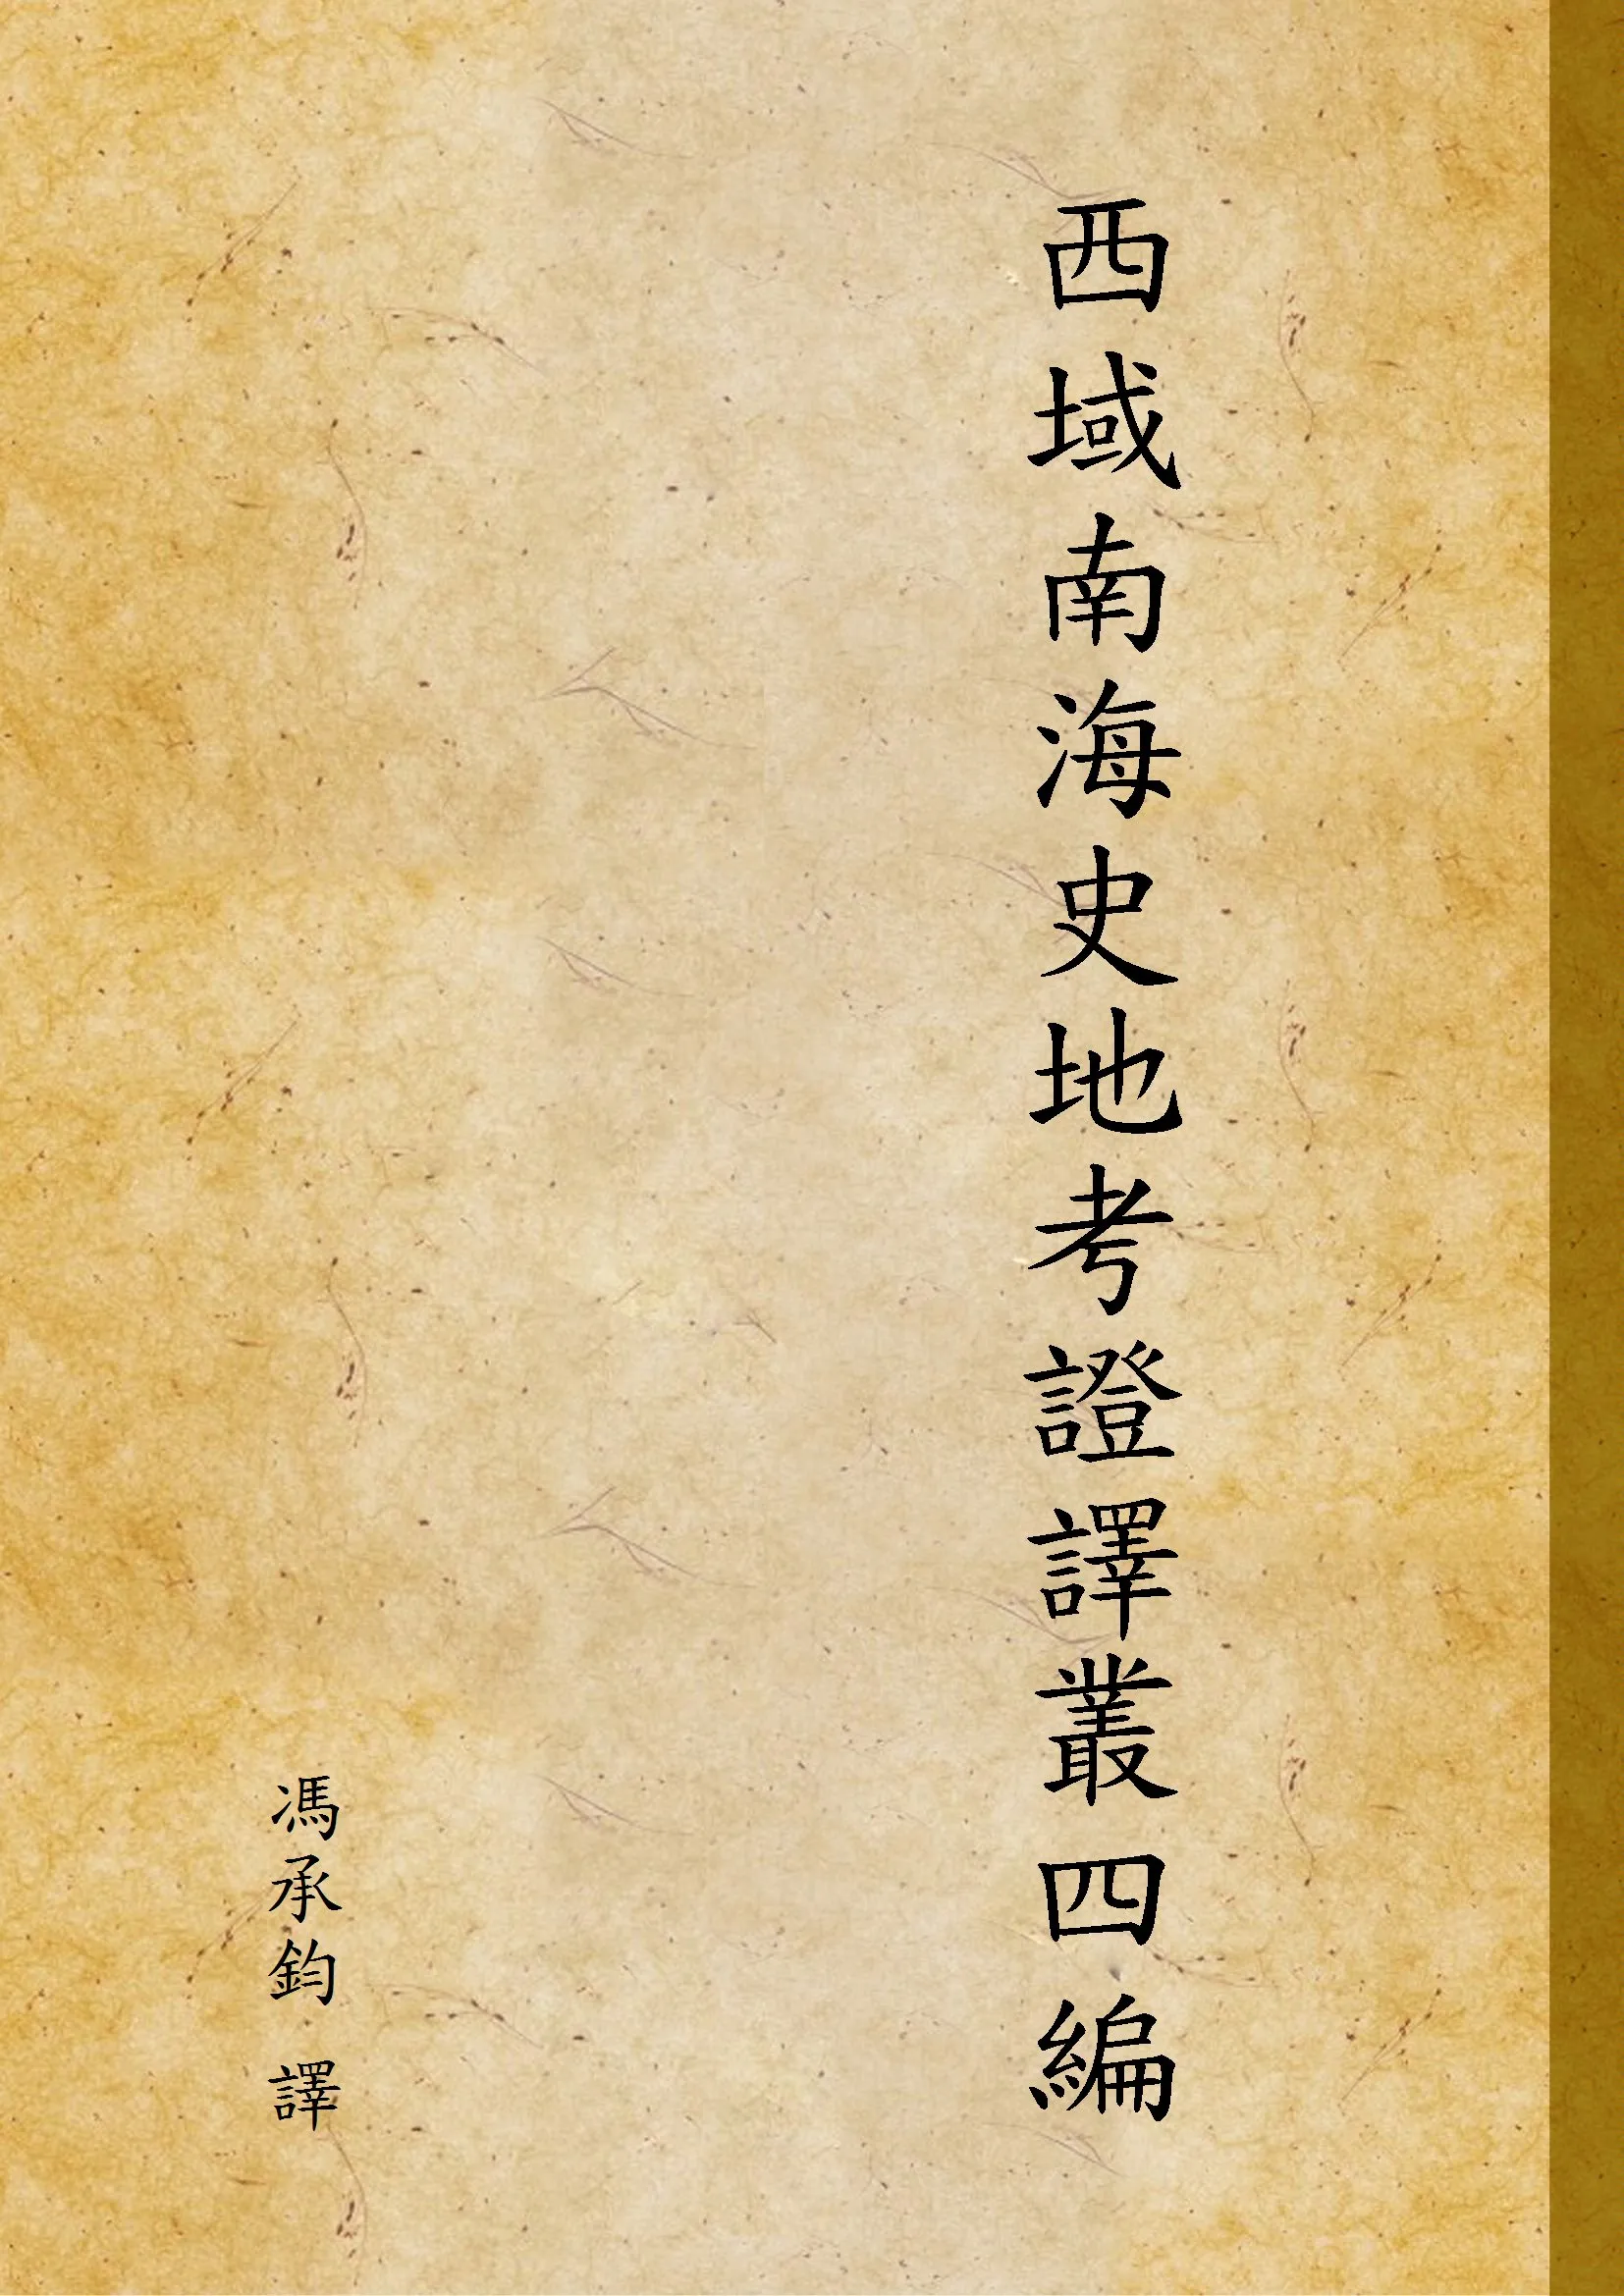 西域南海史地考證譯叢四編
馮承鈞 譯